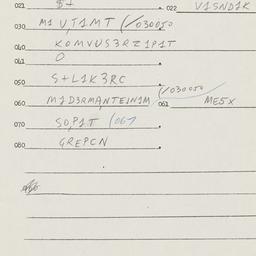 021 $+ 022 V1SND1K
030 M1 VT1MT (/030050
040 KOMVUS3RZ1P1T
041 O
050 S+L1K3RC (/030050
060 M1D3RMANTEIN1M 061 ME5X
070 SOP1T (067
080 GREPCN